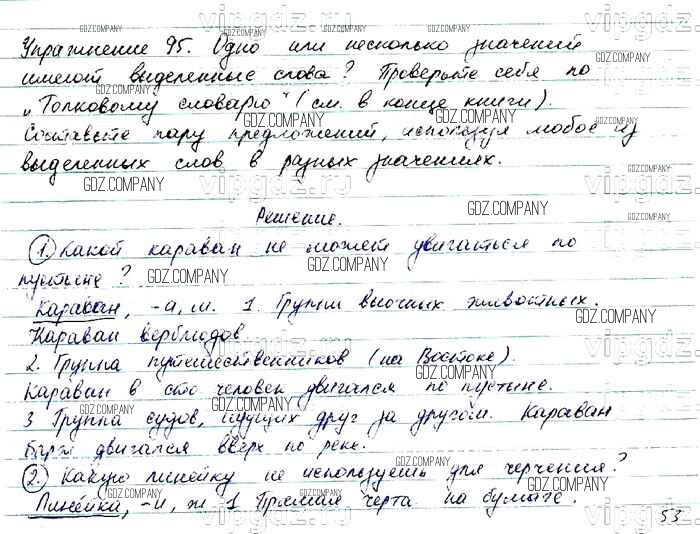 Упражнение 95. Одно или несколько значений
имеют выделенные слова? Проверьте себя по
„Толковому словарю" (см. в конце книги).
Составьте пару предложений, используя любое из
выделенных слов в разных значениях.
Решение.
1. Какой караван не может двигаться по
пустыне?
Караван, -а, м. 1. Группы вьючных животных.
Караван верблюдов
2. Группа путешественников (на Востоке).
Караван в сто человек двигался по пустыне.
3 Группа судов, идущих друг за другом. Караван
барж двигался вверх по реке.
2. Какую линейку не используешь для черчения?
Линейка, -и, ж. 1 Прямая черта на бумаге.
53
vipgdz.ru
GDZ.COMPANY